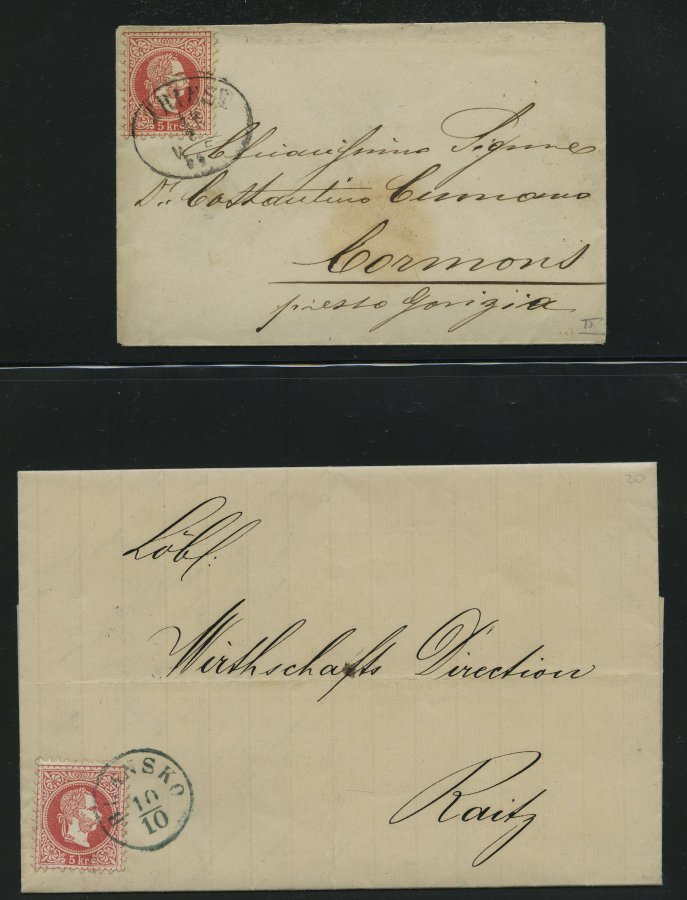 5 kr.
TRIEST
Chiarissimo Signore
Dr. Costantino Cumano
Cormons
presto Gorizia
II
20
Löbl.
Wirthschafts Direction
Raitz
BLANSKO
10/10
5 kr.